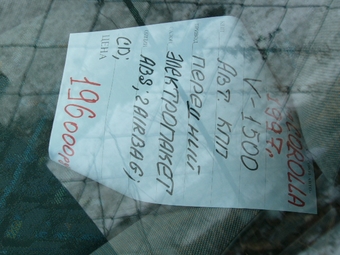 COROLLA
1997г.
V-1500
АВТ. КПП
ПЕРЕДНИЙ
ЭЛЕКТРОПАКЕТ
ABS; 2AIRBAG;
CD;
ЦЕНА
196000р